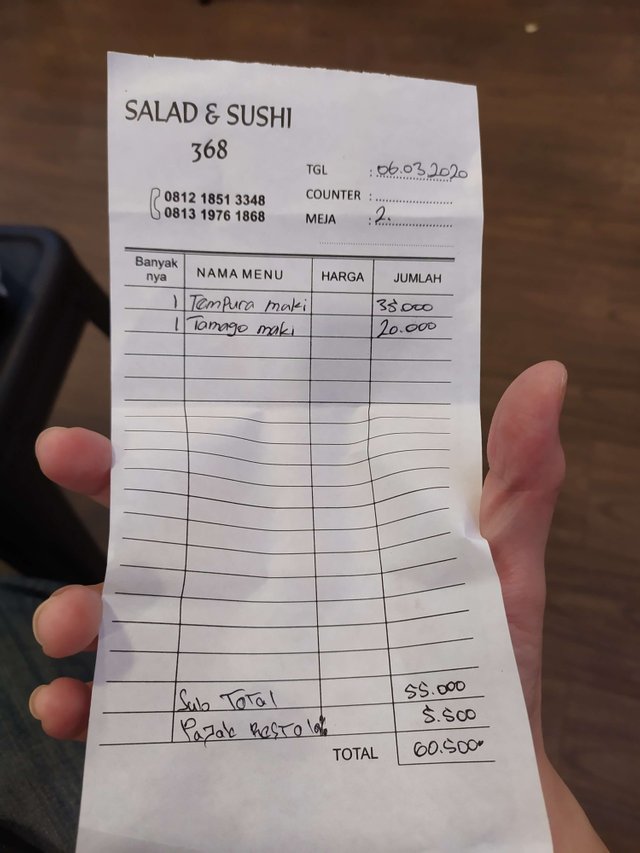 SALAD & SUSHI
368
0812 1851 3348
0813 1976 1868
TGL : 06.03.2020
COUNTER :
MEJA : 2.
Banyak nya NAMA MENU HARGA JUMLAH
1 Tempura maki 35.000
1 Tamago maki 20.000
Sub Total 55.000
Pajak Resto 10% 5.500
TOTAL 60.500